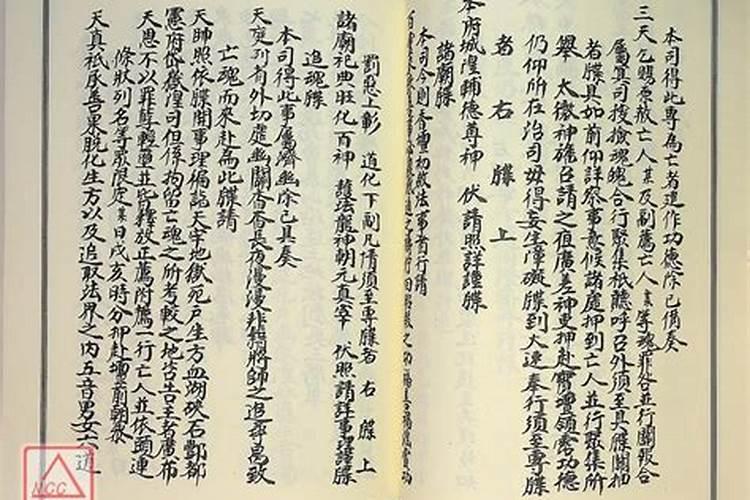 本司得此專為亡者運作功德除已備奏
三天乞賜原赦亡人某及副薦亡人某等魂罪咎並行關報合
屬真司搜撿魂魄合行聚集祇聽呼召外須至具牒關抽
者牒具如前仰詳察事意候諸處押到亡人並行聚集所
舉 太微神謄召請之夜廣差神吏押赴寶壇領霑功德
仍仰所在治司毋得妄生障礙牒到大速奉行須至專牒
者 右 牒 上
本府城隍輔德尊神 伏請照詳謹牒
諸廟牒
罰惡上彰 道化下副凡情須至專牒者 右 牒 上
諸廟祀典旺化百神
追魂牒
本司得此事屬濟幽除已具奏
天庭外有外切慮幽關杳杳長夜漫漫非籍將帥之追尋曷致
亡魂而來赴為此牒請
天師照依牒開事理徧詣天牢地獄死尸生方血湖硤石酆都
憲府岱嶽隍司但係拘留亡魂之所考較之地咨告主者廣布
天恩不以罪孽輕重並皆釋放正薦附薦一行亡人並依頭連
條狀列名等眾限定某日戌亥時分押赴壇前朝參
天真祇承善果脫化生方以及追取法界之內五音男女六道
NCC